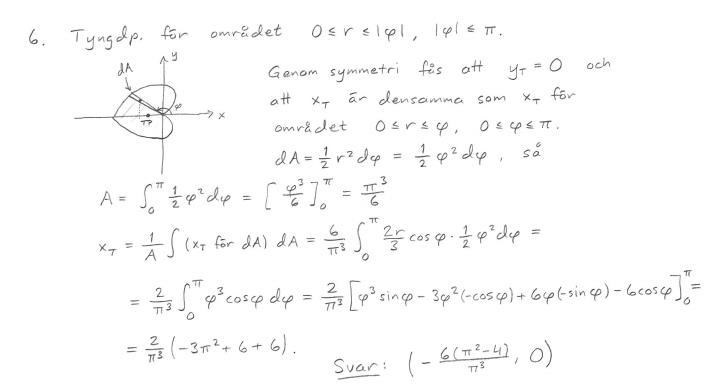 6. Tyngdp. för området 0 ≤ r ≤ |φ|, |φ| ≤ π.
dA y φ x TP
Genom symmetri fås att y_T = 0 och
att x_T är densamma som x_T för
området 0 ≤ r ≤ φ, 0 ≤ φ ≤ π.
dA = 1/2 r² dφ = 1/2 φ² dφ, så
A = ∫₀^π 1/2 φ² dφ = [φ³/6]₀^π = π³/6
x_T = 1/A ∫ (x_T för dA) dA = 6/π³ ∫₀^π 2r/3 cos φ · 1/2 φ² dφ =
= 2/π³ ∫₀^π φ³ cos φ dφ = 2/π³ [φ³ sin φ - 3φ²(-cos φ) + 6φ(-sin φ) - 6 cos φ]₀^π =
= 2/π³ (-3π² + 6 + 6).
Svar: (- 6(π²-4)/π³, 0)